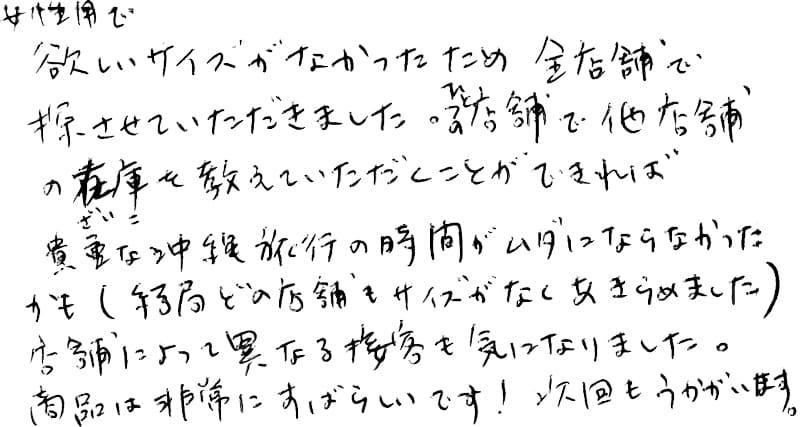 女性用で
欲しいサイズがなかったため 全店舗で
探させていただきました。ひとつの店舗で他店舗
の在庫を教えていただくことができれば
ざいこ
貴重な沖縄旅行の時間がムダにならなかった
かも(結局どの店舗もサイズがなくあきらめました)
店舗によって異なる接客も気になりました。
商品は非常にすばらしいです!次回もうかがいます。